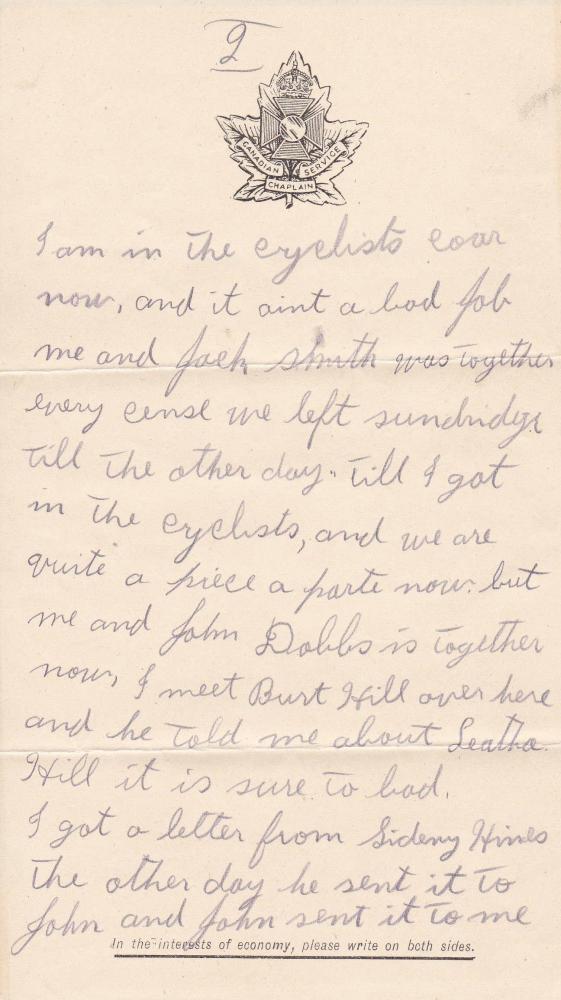 2
CANADIAN CHAPLAIN SERVICE
I am in the cyclists coar
now, and it aint a bad job
me and Jack smith was together
every cense we left sundridge
till the other day. till I got
in the cyclists, and we are
quite a piece a parte now. but
me and John Dobbs is together
now, I meet Burt Hill over here
and he told me about Leatha.
Hill it is sure to bad.
I got a letter from Sideny Hines
the other day he sent it to
John and John sent it to me
In the interests of economy, please write on both sides.